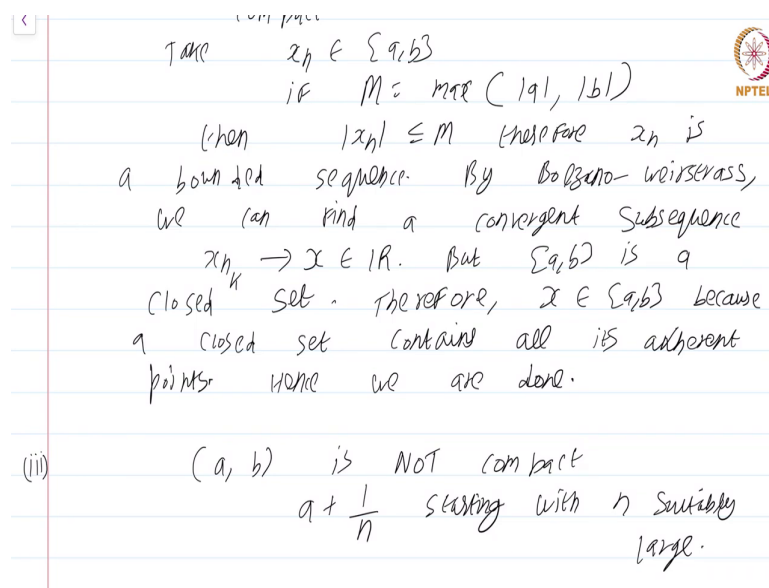 compact
Take xₙ ∈ [a,b]
if M = max (|a|, |b|)
then |xₙ| ≤ M therefore xₙ is
a bounded sequence. By Bolzano-weirstrass,
we can find a convergent subsequence
xₙₖ → x ∈ ℝ. But [a,b] is a
closed set. Therefore, x ∈ [a,b] because
a closed set contains all its adherent
points. Hence we are done.
(iii) (a, b) is NOT compact
a + 1/n starting with n suitably
large.
NPTEL